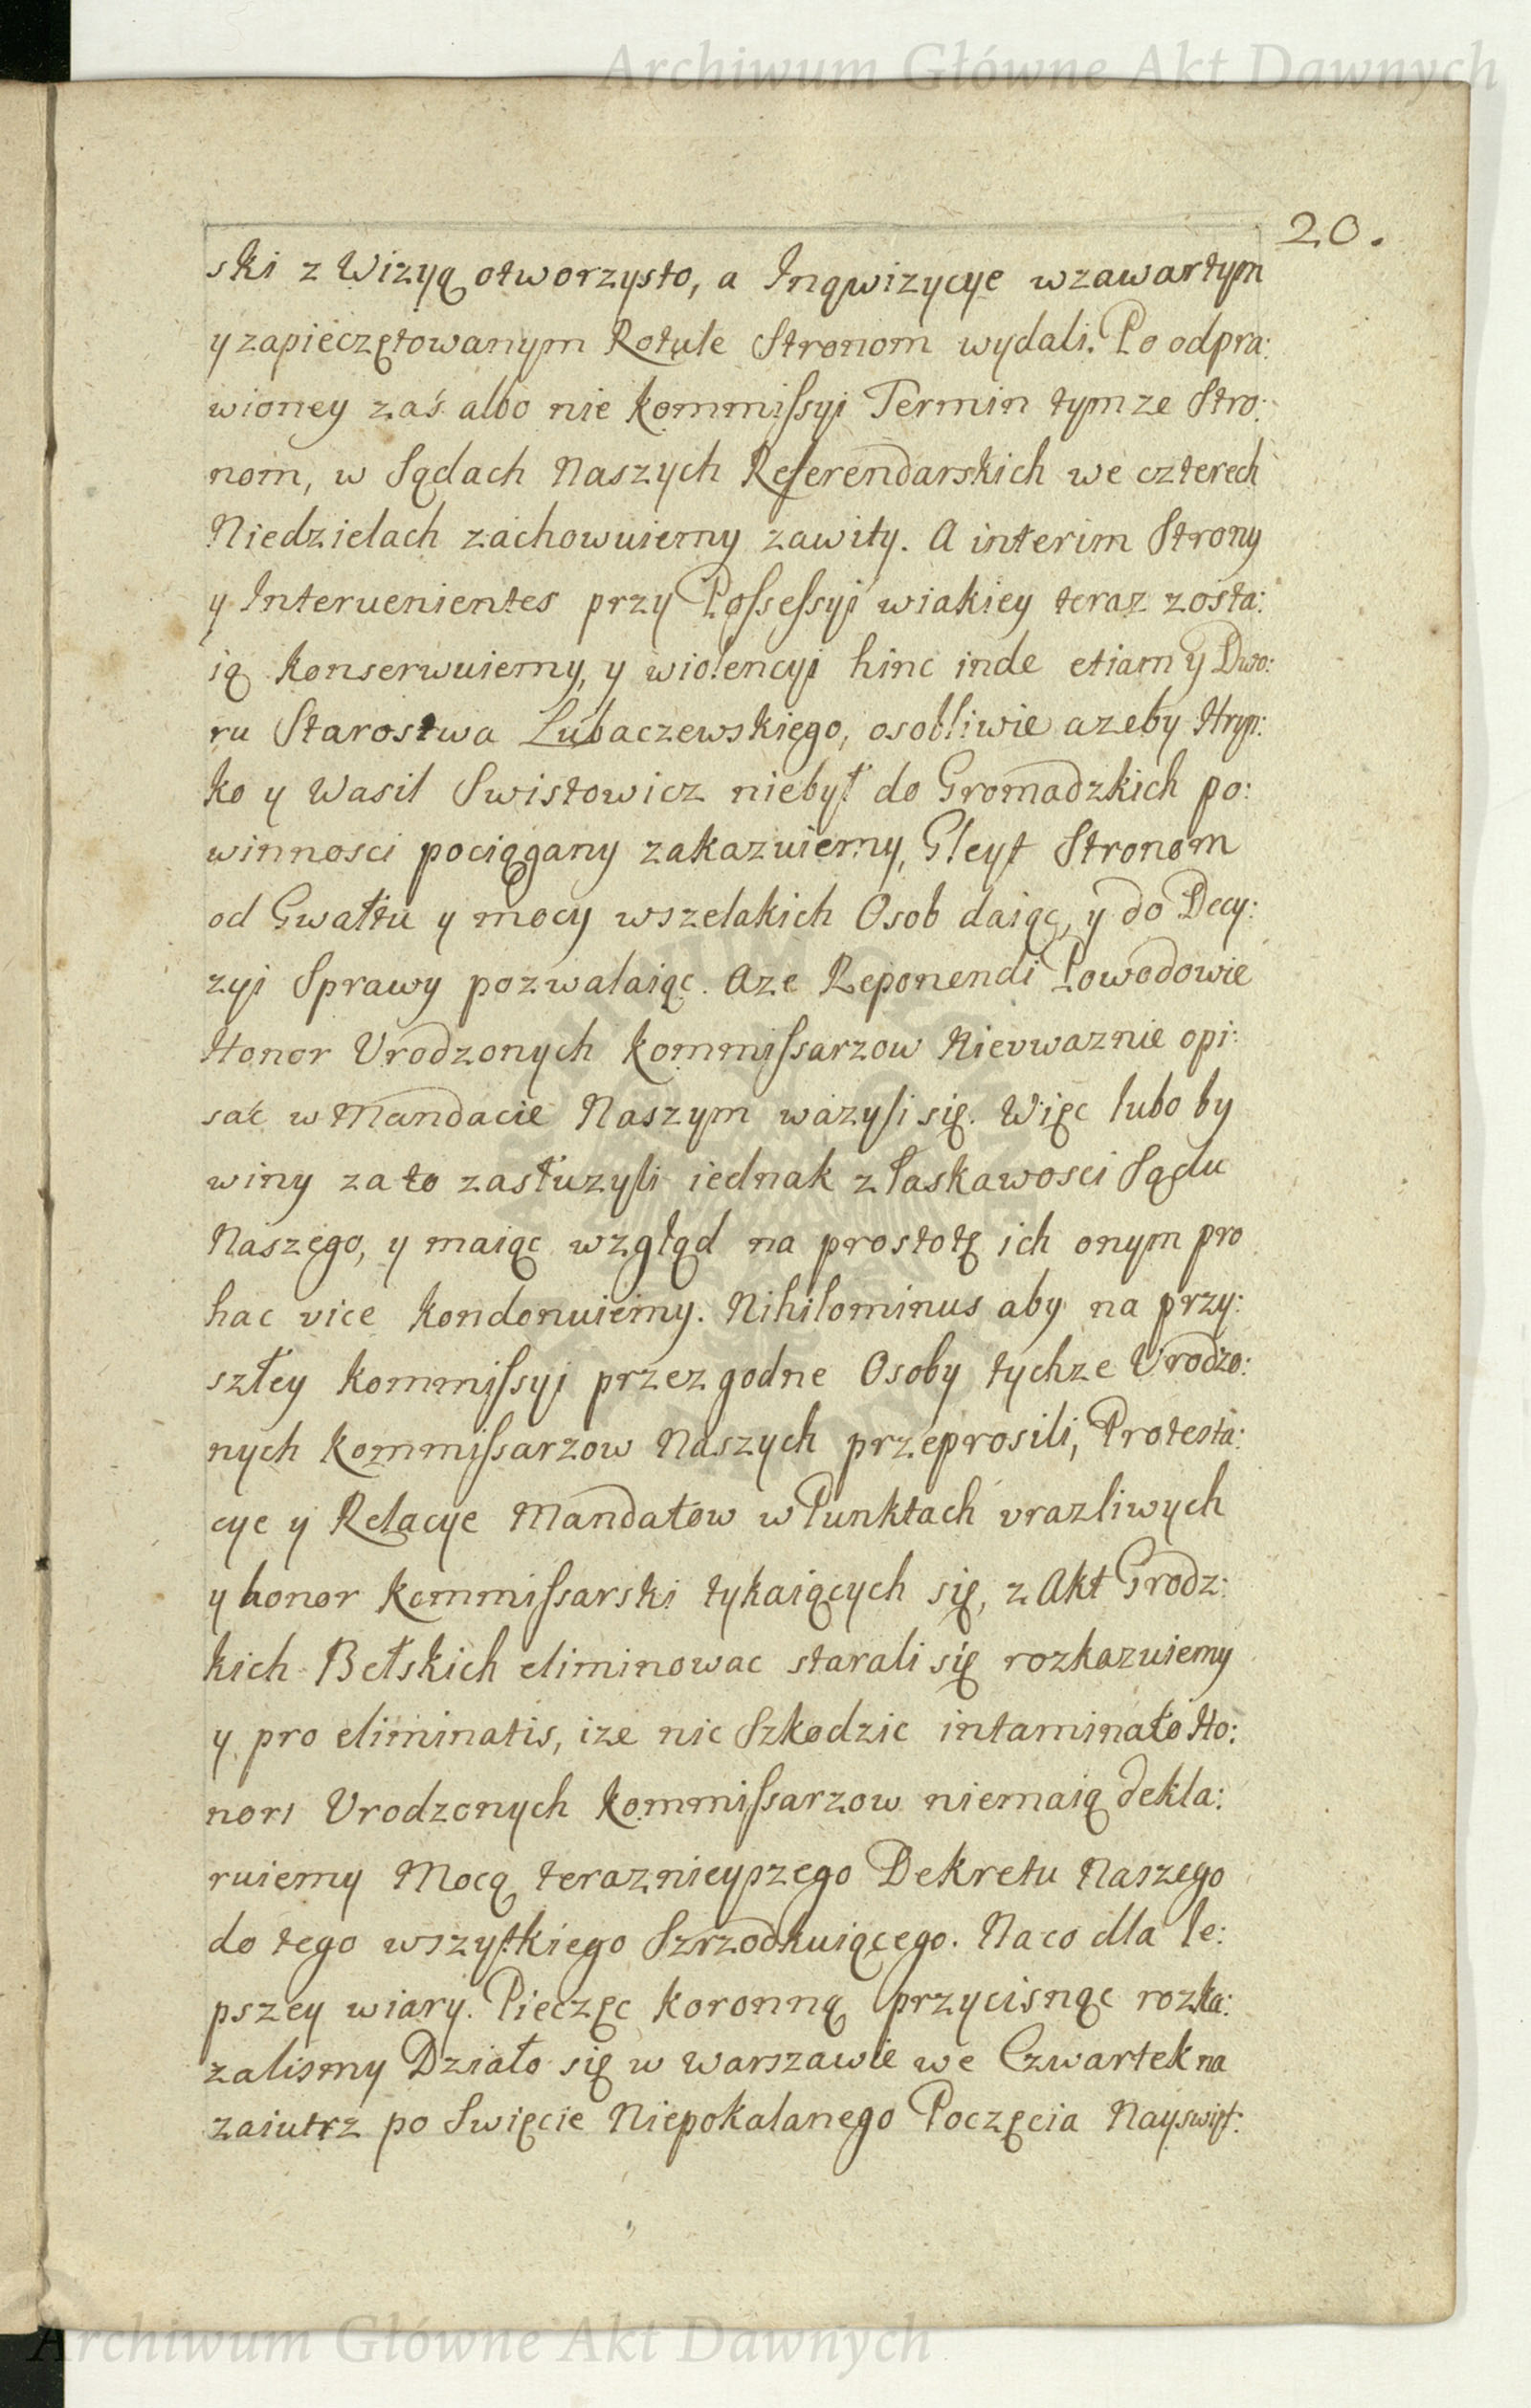 Archiwum Główne Akt Dawnych
20.
ski z Wizyą otworzysto, a Inqwizycye wzawartym
y zapieczętowanym Rotule Stronom wydali. Po odpra:
wioney zaś albo nie kommissyi Termin tymze Stro:
nom, w Sądach Naszych Referendarskich we czterech
Niedzielach zachowuiemy zawity. A interim Strony
y Interuenientes przy Possessyi wiakiey teraz zosta:
ią konserwuiemy, y wiolencyi hinc inde etiam y Dwo:
ru Starostwa Lubaczewskiego, osobliwie azeby Hryn:
ko y Wasil Swistowicz niebył do Gromadzkich po:
winnosci pociągany zakazuiemy, Gleyt Stronom
od Gwałtu y mocy wszelakich Osob daiąc, y do Decy:
zyi Sprawy pozwalaiąc. Aze Reponendi Powodowie
Honor Urodzonych kommissarzow Nieuwaznie opi:
sać w Mandacie Naszym wazyli się. Więc lubo by
winy za to zasłuzyli iednak z łaskawosci Sądu
Naszego, y maiąc wzgląd na prostotę ich onym pro
hac vice kondonuiemy. Nihilominus aby na przy:
szłey kommissyi przez godne Osoby tychze Urodzo:
nych kommissarzow Naszych przeprosili, Protesta:
cye y Relacye Mandatow w Punktach urazliwych
y honor kommissarski tykaiących się, z Akt Grodz:
kich Bełskich eliminowac starali się rozkazuiemy
y pro eliminatis, ize nic Szkodzic intaminato Ho:
nori Urodzonych kommissarzow niemaią dekla:
ruiemy Mocą teraznieyszego Dekretu Naszego
do tego wszytkiego Szrzodkuiącego. Na co dla le:
pszey wiary. Pieczęc koronną przycisnąc rozka:
zalismy Działo się w Warszawie we Czwartek na
zaiutrz po Swięcie Niepokalanego Poczęcia Nayswięt:
Archiwum Główne Akt Dawnych